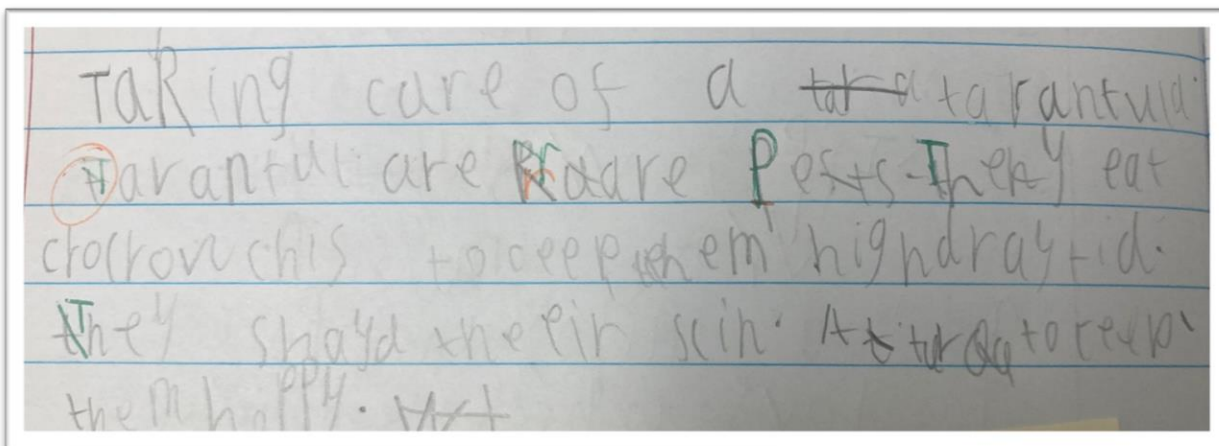 TaKing care of a tarantula.
Tarantul are rare Pests. They eat
crocrowchis to ceep them highdraytid.
They shayd theeir scin. to ceep
them happy.